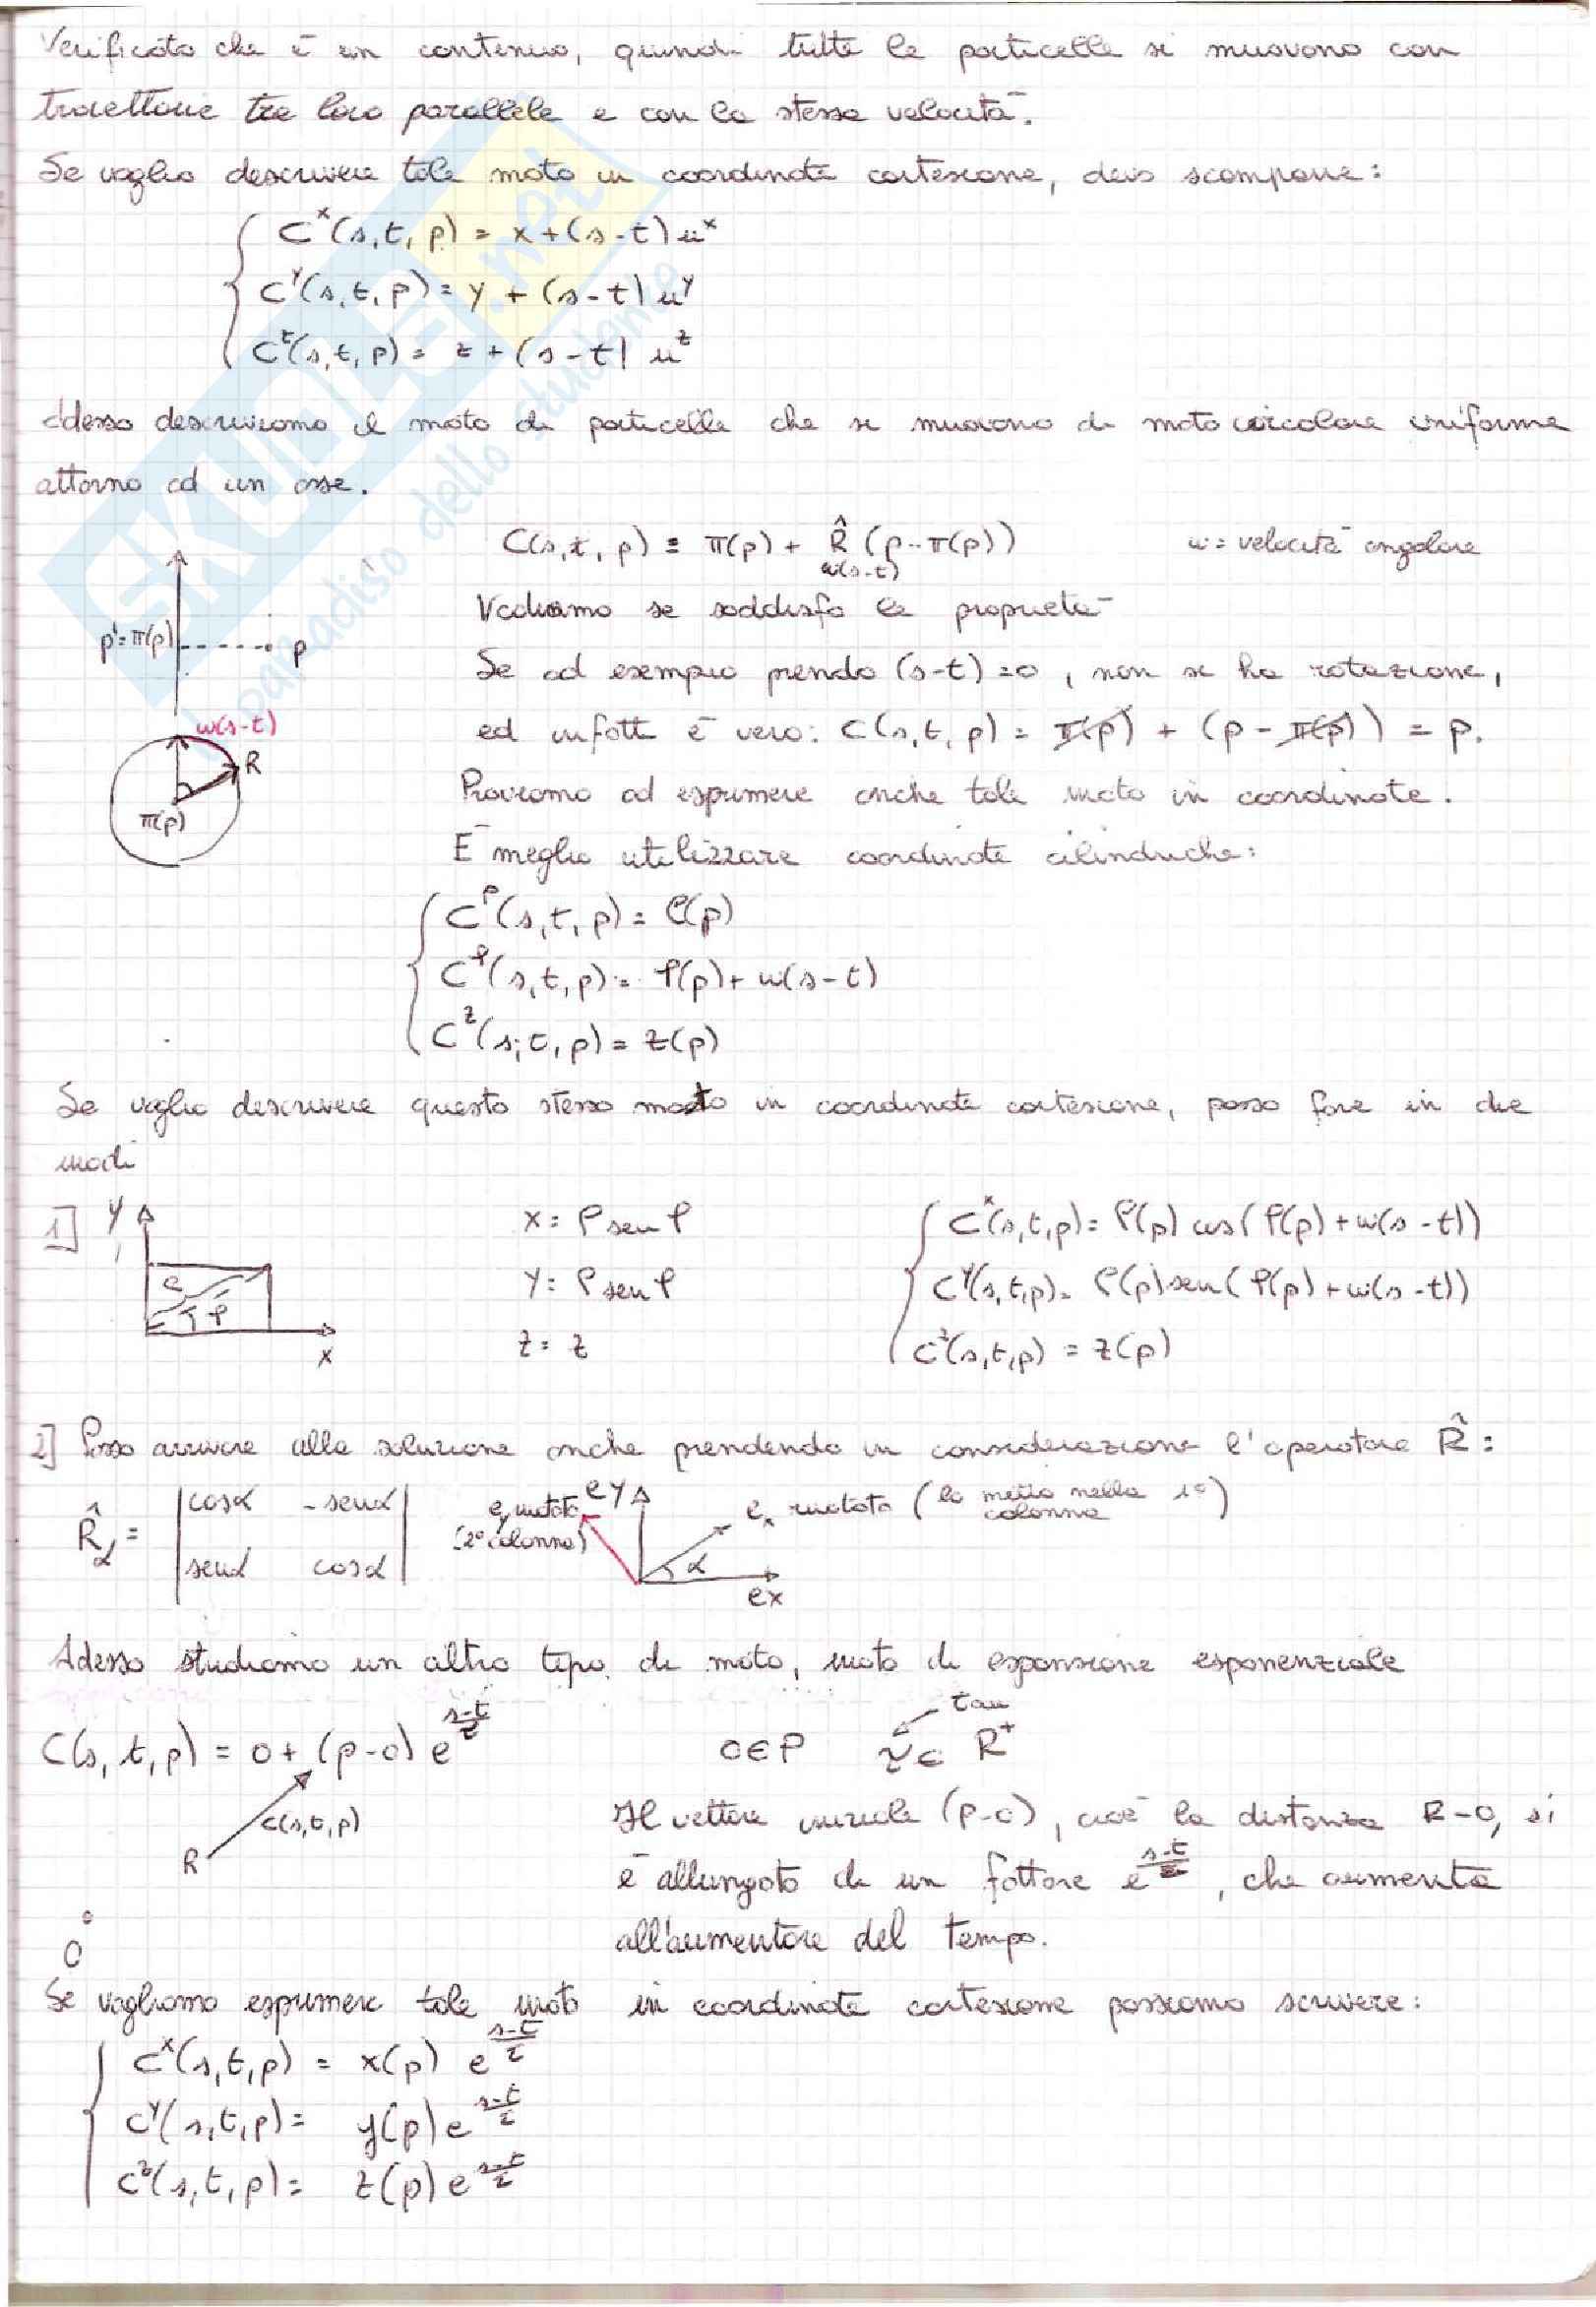 Verificato che è un continuo, quindi tutte le particelle si muovono con
traiettorie tra loro parallele e con la stessa velocità.
Se voglio descrivere tale moto in coordinate cartesiane, devo scomporre:
C^x(s,t,p) = x+(s-t)u^x
C^y(s,t,p) = y + (s-t)u^y
C^z(s,t,p) = z+(s-t) u^z
Adesso descriviamo il moto di particelle che si muovono di moto circolare uniforme
attorno ad un asse.
C(s,t,p) = π(p) + R̂_ω(s-t) (p-π(p))
ω = velocità angolare
Vediamo se soddisfa le proprietà
p'=π(p)
p
Se ad esempio prendo (s-t)=0, non si ha rotazione,
ω(s-t)
ed infatti è vero: C(s,t,p) = π(p) + (p-π(p)) = p.
R
π(p)
Proviamo ad esprimere anche tale moto in coordinate.
È meglio utilizzare coordinate cilindriche:
C^ρ(s,t,p) = ρ(p)
C^φ(s,t,p) = φ(p)+ω(s-t)
C^z(s,t,p) = z(p)
Se voglio descrivere questo stesso moto in coordinate cartesiane, posso fare in due
modi
1]
y
ρ
φ
x
x = ρ sen φ
y = ρ sen φ
z = z
C^x(s,t,p) = ρ(p) cos(φ(p)+ω(s-t))
C^y(s,t,p) = ρ(p) sen(φ(p)+ω(s-t))
C^z(s,t,p) = z(p)
2] Posso arrivare alla soluzione anche prendendo in considerazione l'operatore R̂:
R̂_α = |cosα -senα|
|senα cosα|
e_y ruotato
(2° colonna)
e_y
e_x ruotato (lo metto nella 1° colonna)
α
e_x
Adesso studiamo un altro tipo di moto, moto di espansione esponenziale
C(s,t,p) = o + (p-o) e^{(s-t)/τ}
o∈P
tau
τ∈ R^+
C(s,t,p)
R
O
Il vettore iniziale (p-o), cioè la distanza R-O, si
è allungato di un fattore e^{(s-t)/τ}, che aumenta
all'aumentare del tempo.
Se vogliamo esprimere tale moto in coordinate cartesiane possiamo scrivere:
C^x(s,t,p) = x(p) e^{(s-t)/τ}
C^y(s,t,p) = y(p) e^{(s-t)/τ}
C^z(s,t,p) = z(p) e^{(s-t)/τ}
SKUOLA.net
il paradiso dello studente